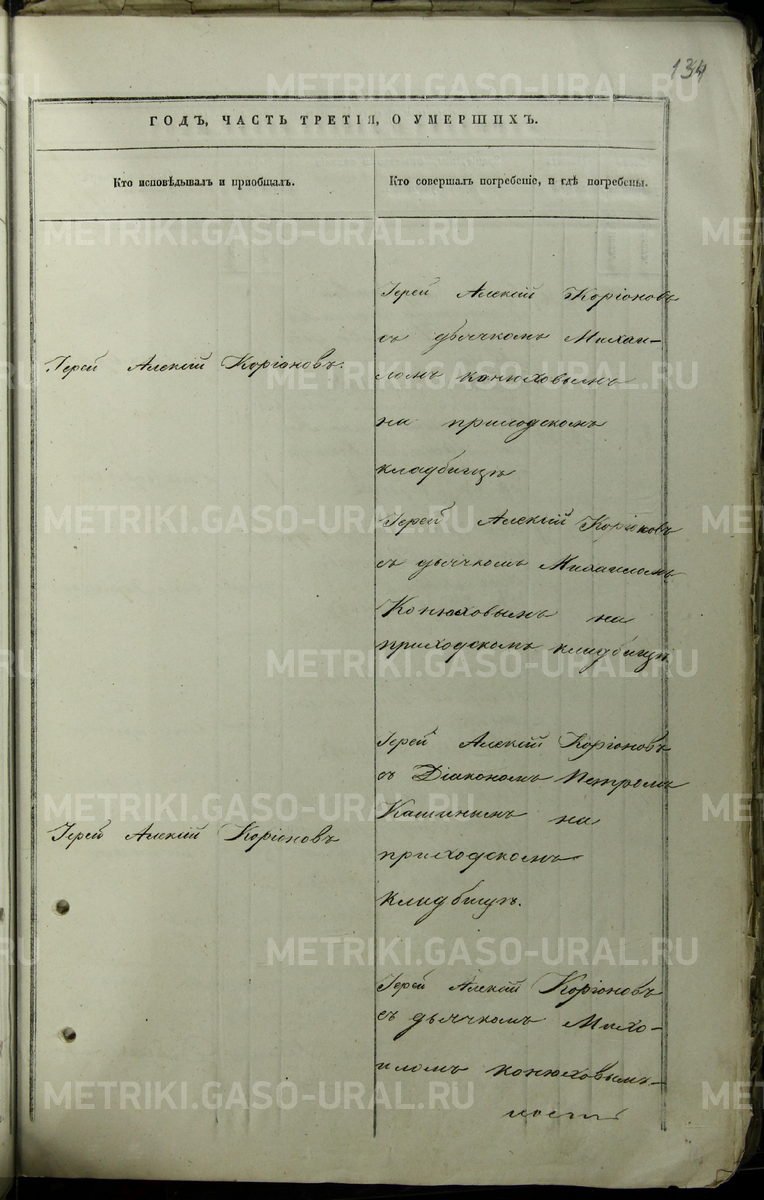 134
ГОДЪ, ЧАСТЬ ТРЕТІЯ, О УМЕРШИХЪ.
Кто исповѣдывалъ и пріобщалъ.
Кто совершалъ погребеніе, и гдѣ погребены.
Іерей Алексій Коріоновъ.
Іерей Алексій Коріоновъ
Іерей Алексій Коріоновъ
съ дьячкомъ Михаи-
ломъ Конюховымъ
на приходскомъ
кладбищѣ
Іерей Алексій Коріоновъ
съ дьячкомъ Михаиломъ
Конюховымъ на
приходскомъ кладбищѣ
Іерей Алексій Коріоновъ
съ Діакономъ Петромъ
Кашинымъ на
приходскомъ
кладбищѣ.
Іерей Алексій Коріоновъ
съ дьячкомъ Миха-
иломъ Конюховымъ
METRIKI.GASO-URAL.RU